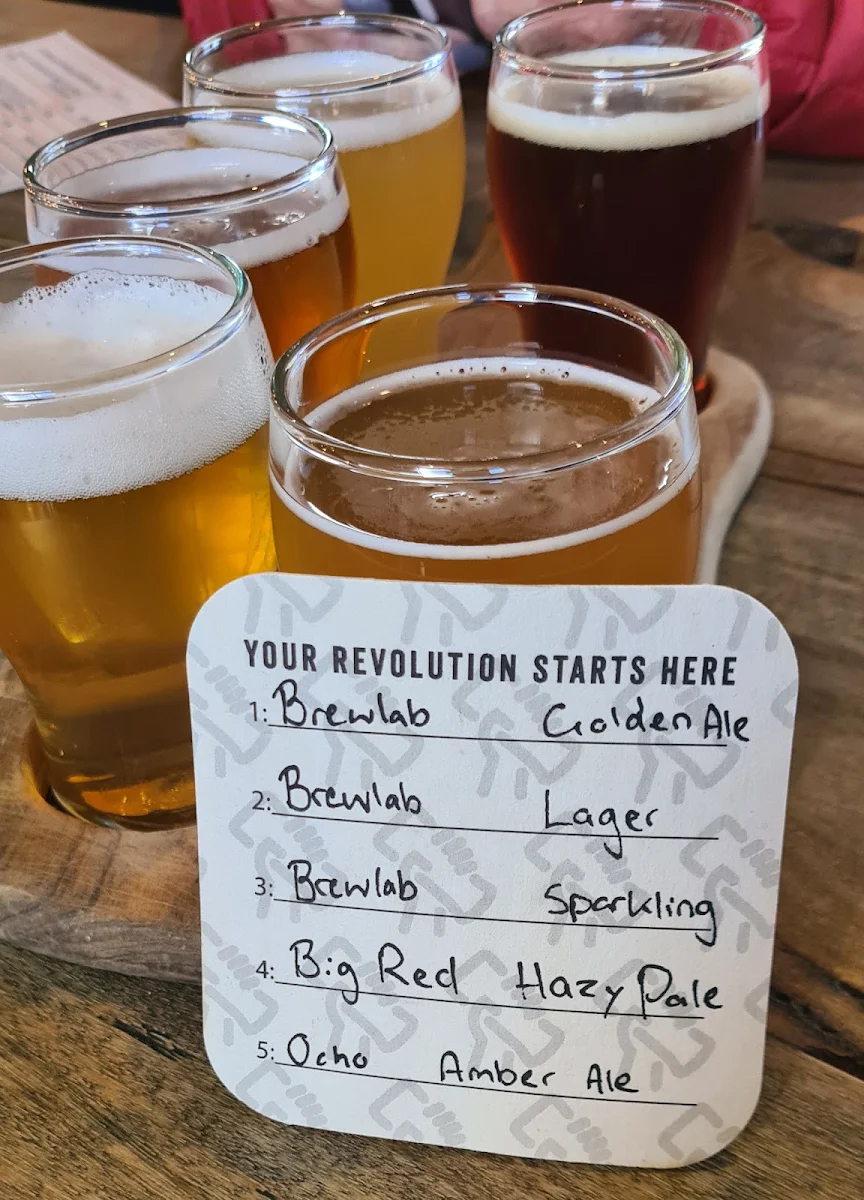 YOUR REVOLUTION STARTS HERE
1: Brewlab Golden Ale
2: Brewlab Lager
3: Brewlab Sparkling
4: Big Red Hazy Pale
5: Ocho Amber Ale